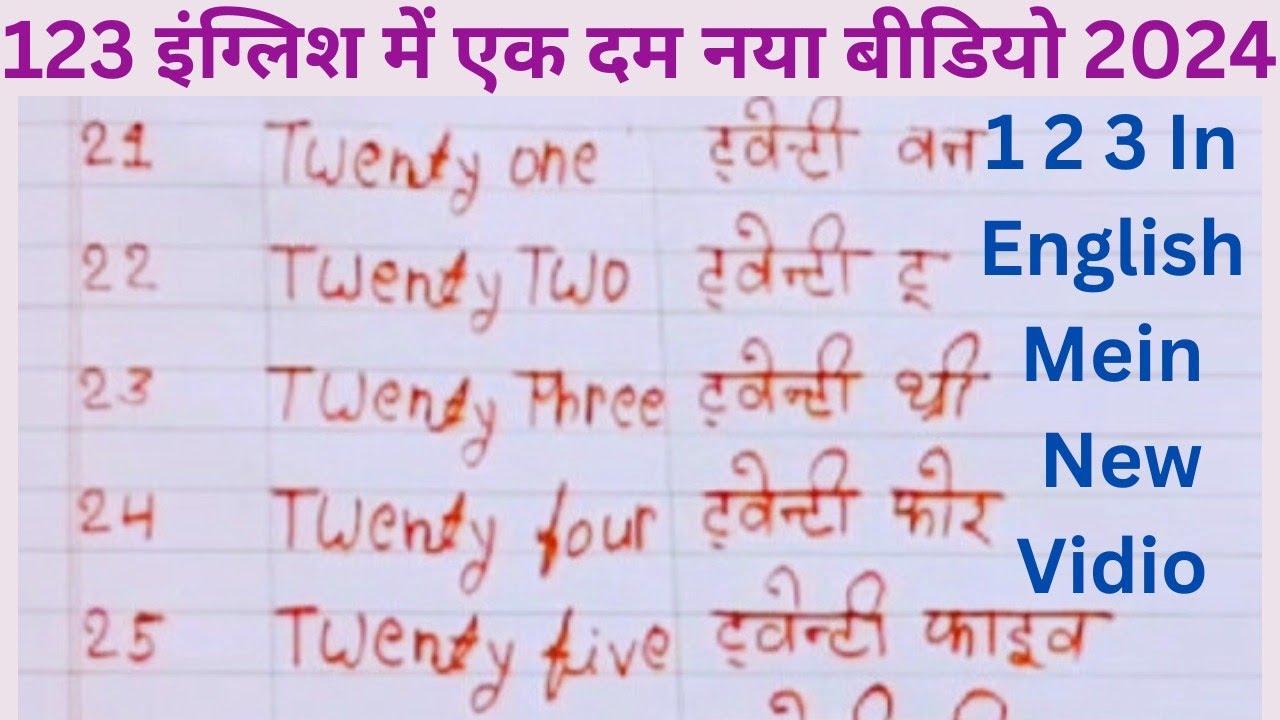 123 इंग्लिश में एक दम नया बीडियो 2024
21 Twenty one ट्वेन्टी वन
22 Twenty Two ट्वेन्टी टू
23 Twenty Three ट्वेन्टी थ्री
24 Twenty four ट्वेन्टी फोर
25 Twenty five ट्वेन्टी फाइव
1 2 3 In
English
Mein
New
Vidio